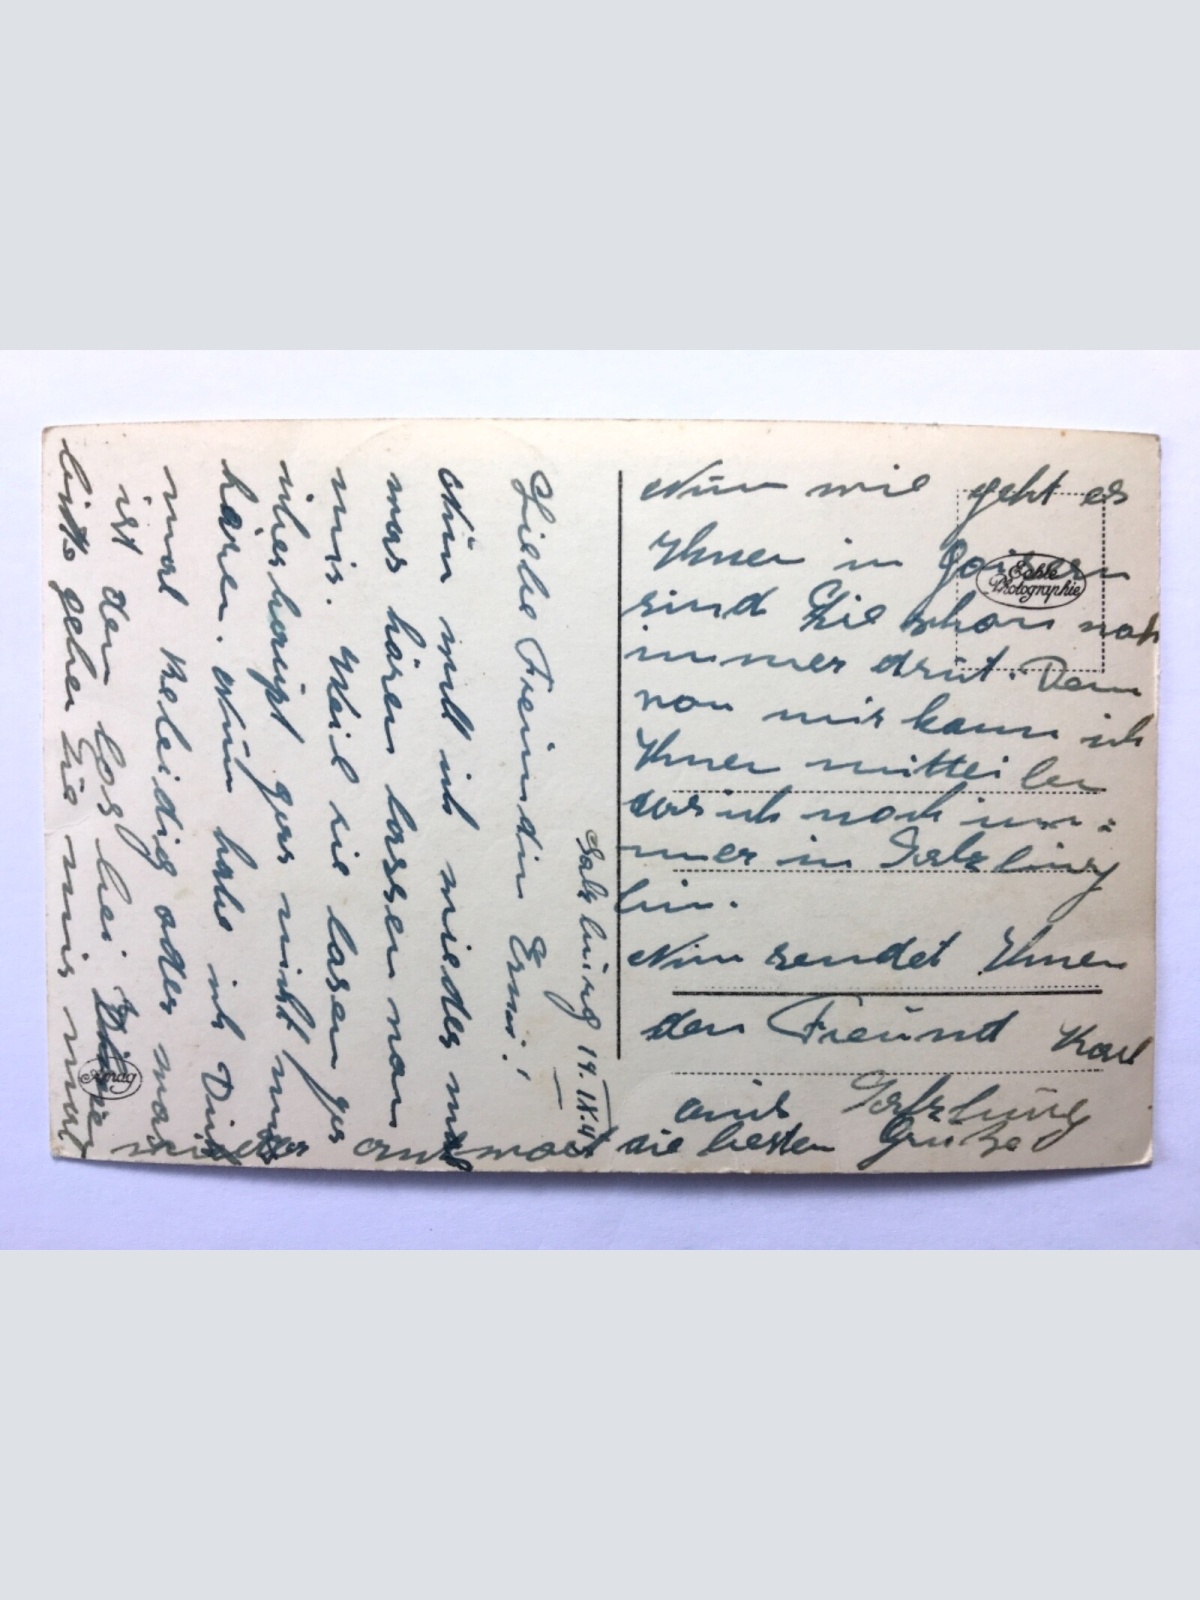 Salzburg 14. IX. 41
Liebe Freundin Erni!
Nun will ich wieder mal
was hören lassen von
mir. Weil sie lasen gar
überhaupt gars nicht mer
hären. Nun habe ich Dich
mal beleidig oder was
ist den los bei
bitte geben sie mir mal
wieder antwort
Nun wie geht es
Ihnen in Goisern
sind Sie schon noch
immer drüt. Den
von mir kann ich
Ihnen mitteilen
das ich noch im=
mer in Salzburg
bin.
Nun sendet Ihnen
den Freund Karl
aus Salzburg
die besten Grüße
Echte
Photographie
Amag